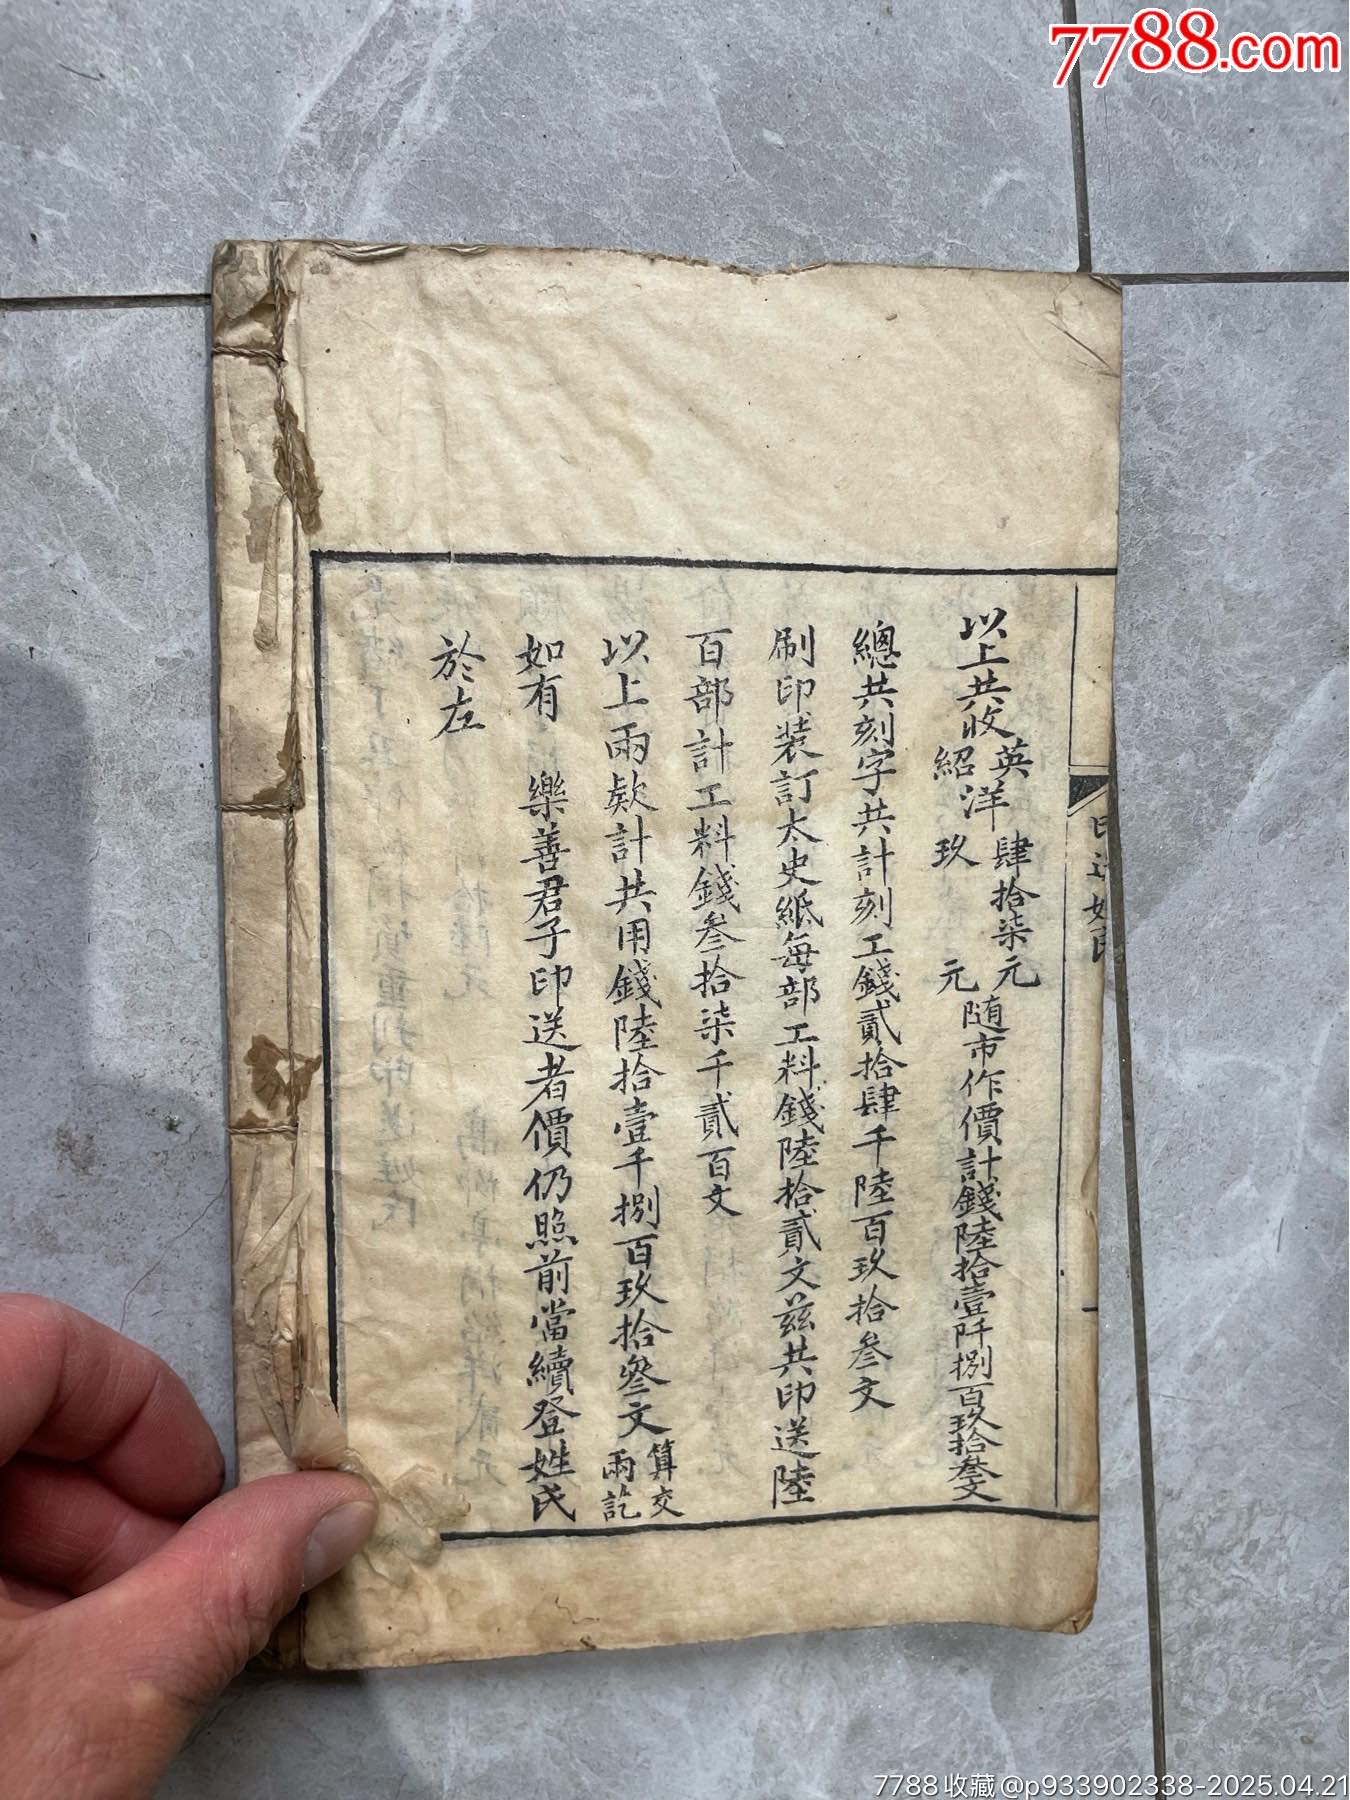 7788.com
以上共收英洋肆拾柒元紹洋玖元隨市作價計錢陸拾壹阡捌百玖拾叁文
總共刻字共計刻工錢貳拾肆千陸百玖拾叁文
刷印裝訂太史紙每部工料錢陸拾貳文茲共印送陸
百部計工料錢叁拾柒千貳百文
以上兩欵計共用錢陸拾壹千捌百玖拾叁文算交兩訖
如有 樂善君子印送者價仍照前當續登姓氏
於左
印送姓氏
7788收藏@p933902338-2025.04.21